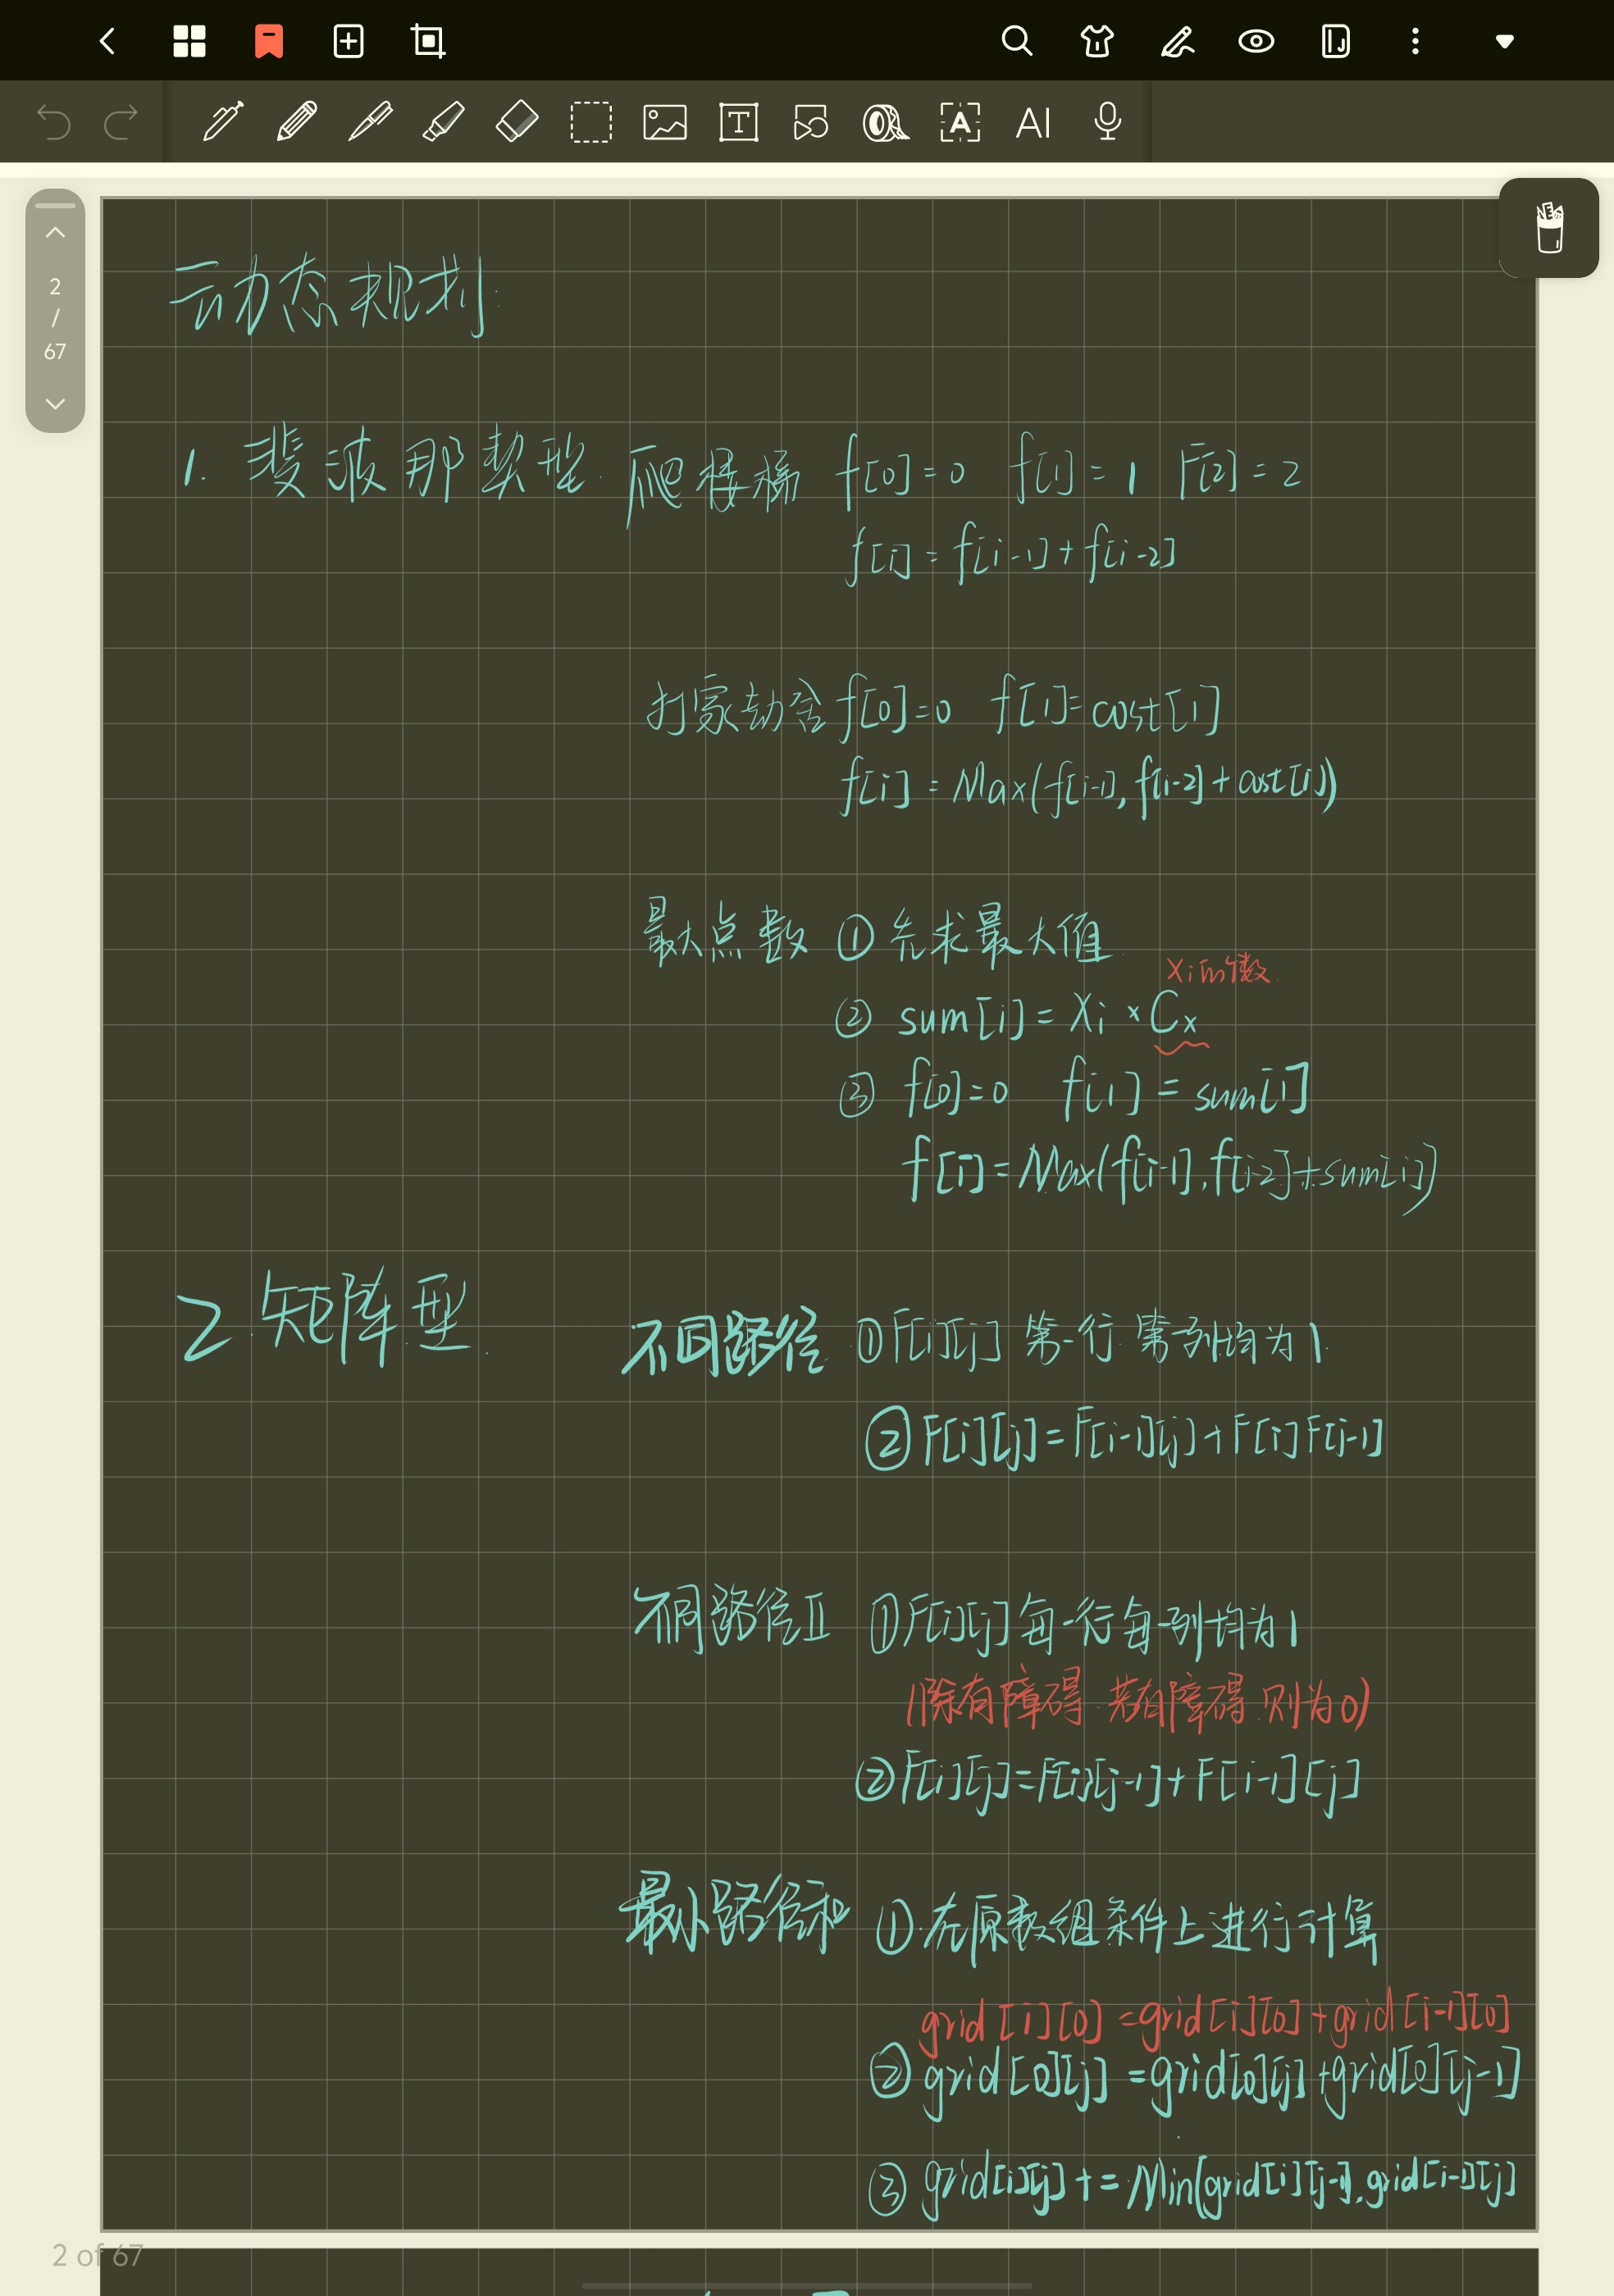 2
/
67
一动态规划:
1. 斐波那契型. 爬楼梯 f[0]=0 f[1]=1 F[2]=2
f[i]=f[i-1]+f[i-2]
打家劫舍 f[0]=0 f[1]=cost[1]
f[i]=Max(f[i-1],f[i-2]+cost[i])
最大点数 ① 先求最大值
Xi的个数
② sum[i]=Xi×Cx
③ f[0]=0 f[1]=sum[1]
f[i]=Max(f[i-1],f[i-2]+sum[i])
2.矩阵型.
不同路径 ①F[i][j] 第一行 第一列均为1
②F[i][j]=F[i-1][j]+F[i]F[j-1]
不同路径II ①F[i][j]每一行每一列均为1
(除有障碍.若有障碍.则为0)
②F[i][j]=F[i][j-1]+F[i-1][j]
最小路径和 ①.在原数组条件上进行计算
grid[i][0]=grid[i][0]+grid[i-1][0]
②grid[0][j]=grid[0][j]+grid[0][j-1]
③grid[i][j]+=Min(grid[i][j-1],grid[i-1][j]
2 of 67